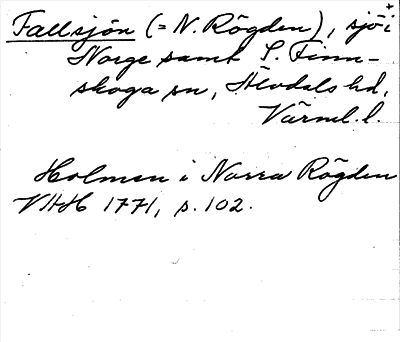 Fallsjön (= N. Rögden), sjö i
Norge samt S. Finn-
skoga sn, Älvdals hd,
Värml. l.
Holmen i Norra Rögden
VHH 1771, s. 102.